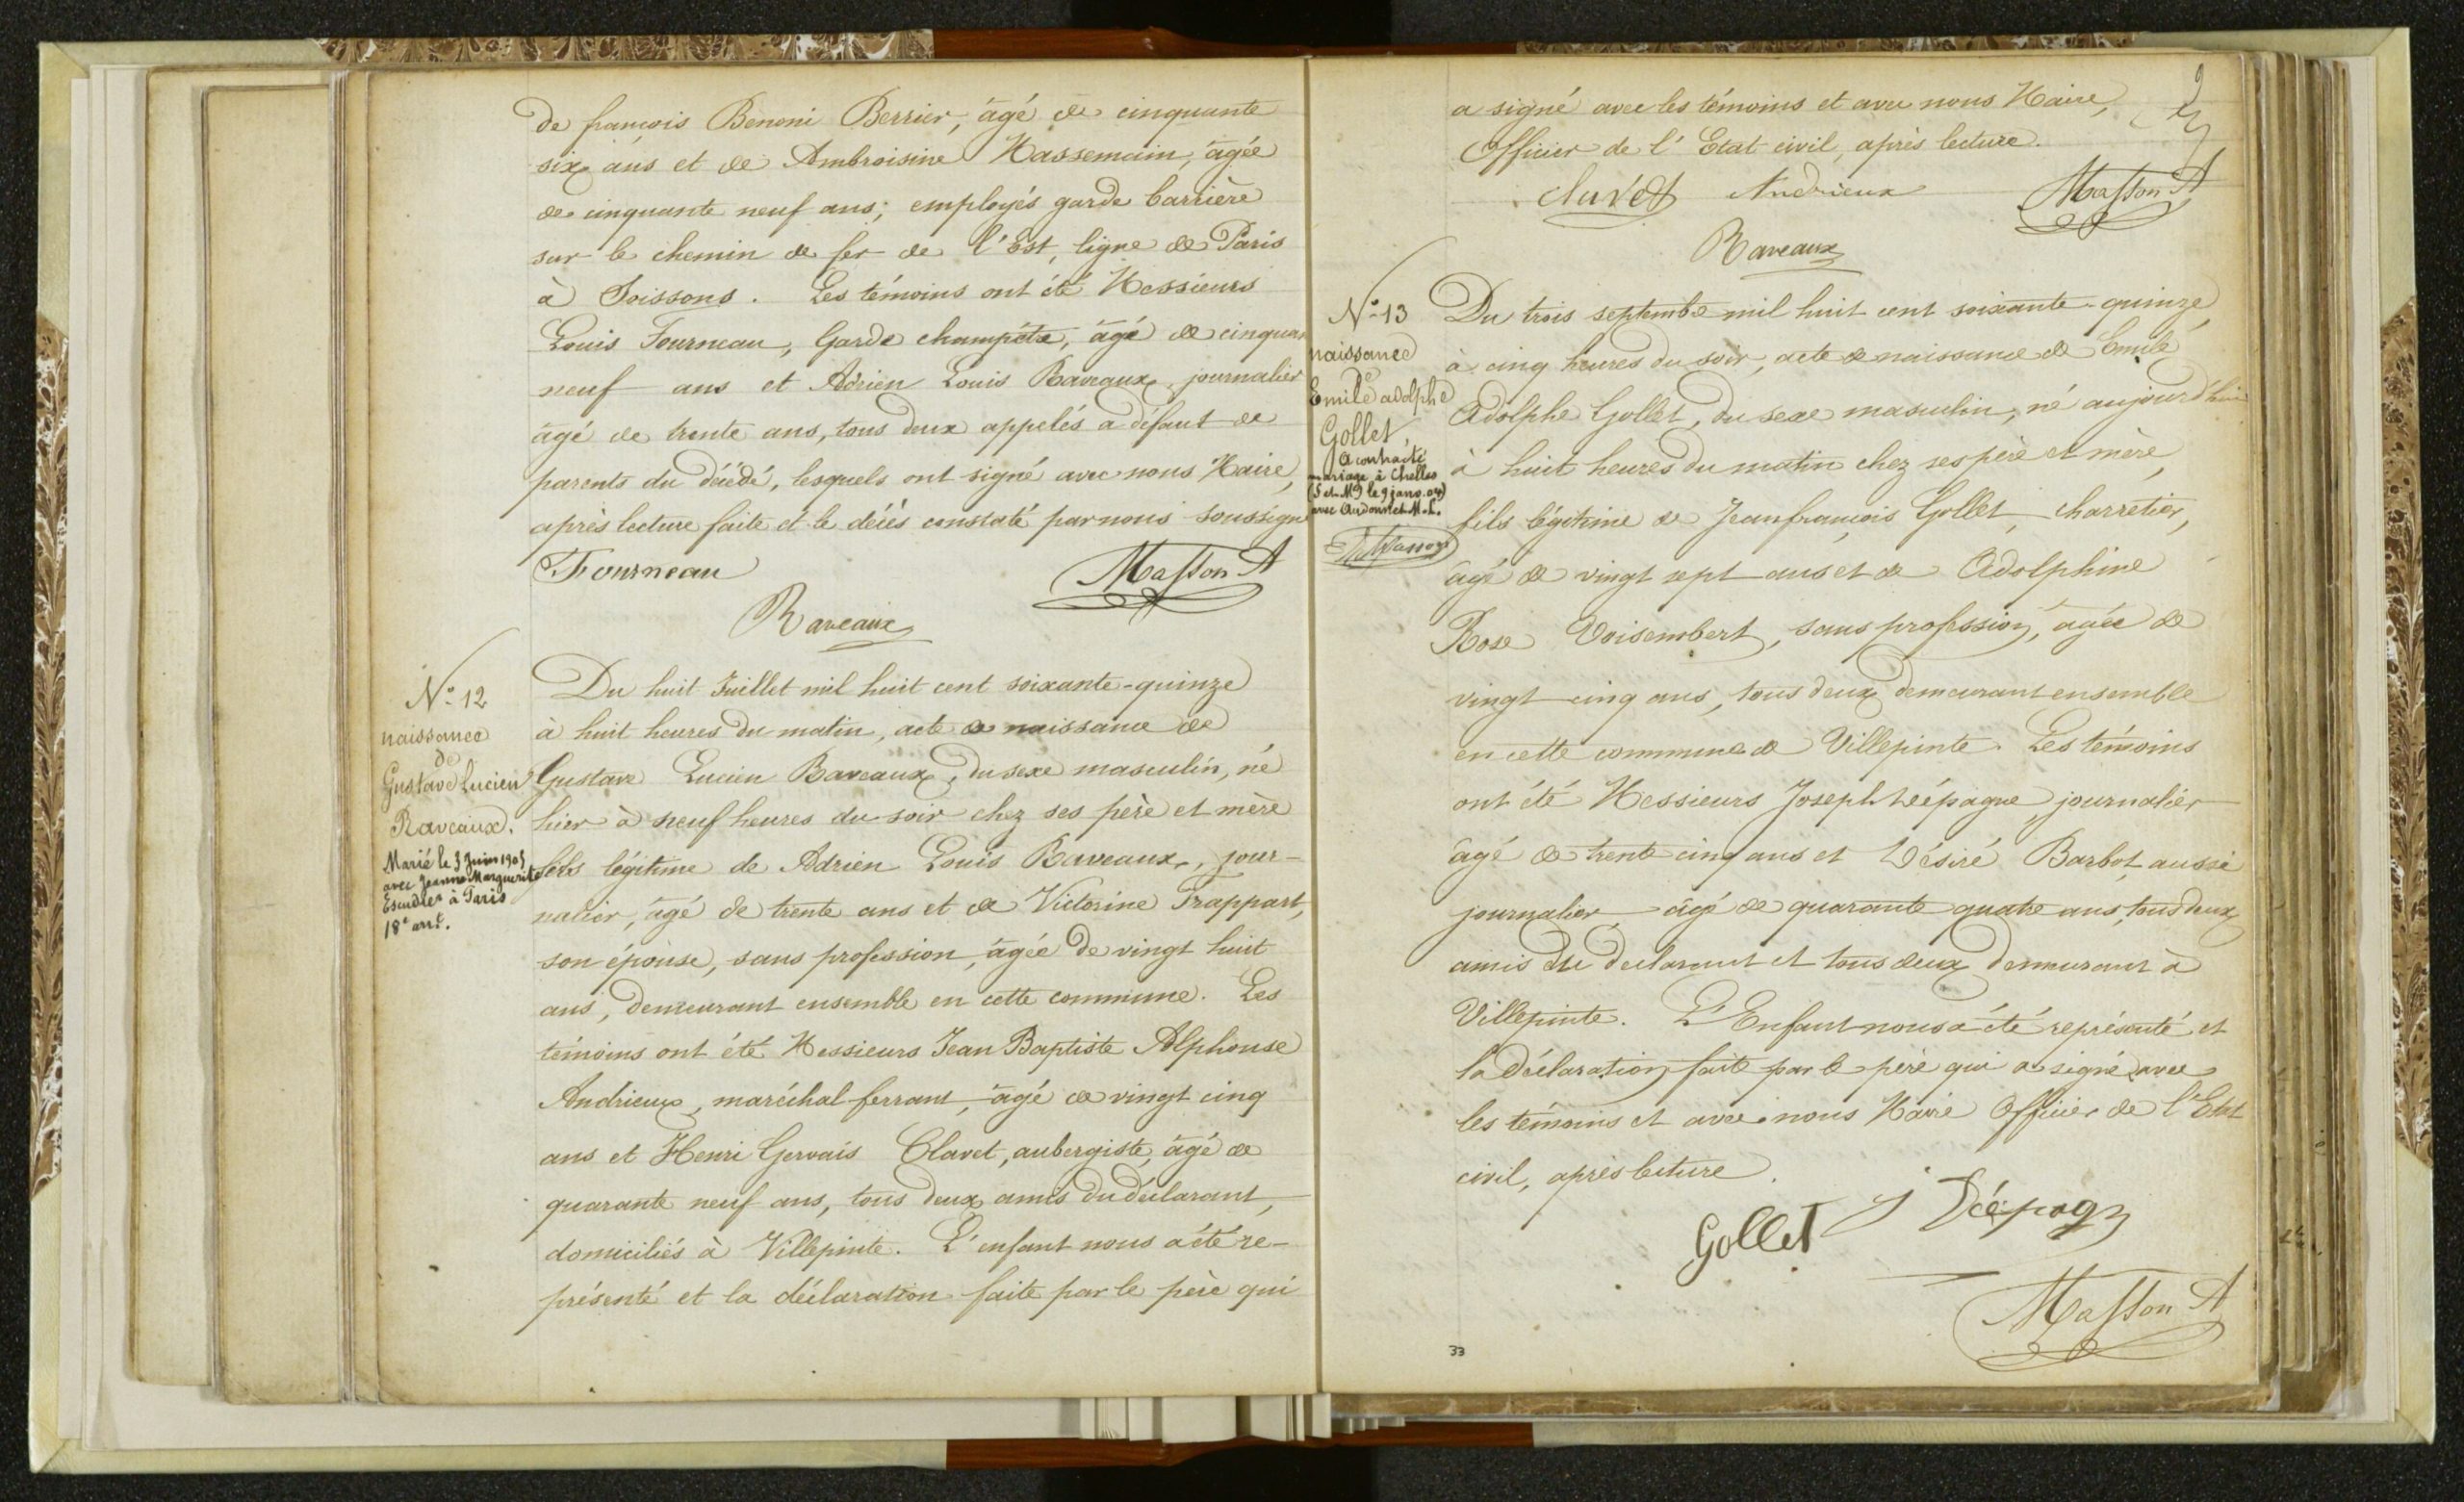 de françois Benoni Berrier, âgé de cinquante
six ans et de Ambroisine Massemain, âgée
de cinquante neuf ans; employés garde barrière
sur le chemin de fer de l'Est, ligne de Paris
à Soissons. Les témoins ont été Messieurs
Louis Fourneau, Garde champêtre, âgé de cinquan
neuf ans et Adrien Louis Raveaux, journalier
âgé de trente ans, tous deux appelés à défaut de
parents du décédé, lesquels ont signé avec nous Maire,
après lecture faite et le décès constaté par nous soussigné
Fourneau Masson A
Raveaux
N° 12
naissance
de
Gustave Lucien
Raveaux.
Marié le 3 Juin 1905
avec Jeanne Marguerite
Escudier à Paris
18e arrt.
Du huit Juillet mil huit cent soixante-quinze
à huit heures du matin, acte de naissance de
Gustave Lucien Raveaux, du sexe masculin, né
hier à neuf heures du soir chez ses père et mère
fils légitime de Adrien Louis Raveaux, jour-
nalier, âgé de trente ans et de Victorine Frappart,
son épouse, sans profession, âgée de vingt huit
ans, demeurant ensemble en cette commune. Les
témoins ont été Messieurs Jean Baptiste Alphonse
Andrieux, maréchal ferrant, âgé de vingt cinq
ans et Henri Gervais Clavet, aubergiste, âgé de
quarante neuf ans, tous deux amis du déclarant,
domiciliés à Villepinte. L'enfant nous a été re-
présenté et la déclaration faite par le père qui
a signé avec les témoins et avec nous Maire,
Officier de l'Etat civil, après lecture.
Clavet Andrieux Masson A
Raveaux
N° 13
naissance
de
Emile adolphe
Gollet,
A contracté
mariage à Chelles
(S et M) le 9 janv. 04)
avec Audonnet M.L.
Masson
Du trois septembre mil huit cent soixante-quinze
à cinq heures du soir, acte de naissance de Emile
Adolphe Gollet, du sexe masculin, né aujourd'hui
à huit heures du matin chez ses père et mère,
fils légitime de Jean françois Gollet, charretier,
âgé de vingt sept ans et de Adolphine
Rose Voisembert, sans profession, âgée de
vingt cinq ans, tous deux demeurant ensemble
en cette commune de Villepinte. Les témoins
ont été Messieurs Joseph Déépagne, journalier
âgé de trente cinq ans et Désiré Barbot, aussi
journalier, âgé de quarante quatre ans, tous deux
amis du declarant et tous deux demeurant à
Villepinte. L'Enfant nous a été représenté et
la déclaration faite par le père qui a signé avec
les témoins et avec nous Maire Officier de l'Etat
civil, après lecture.
Gollet
Masson A
33